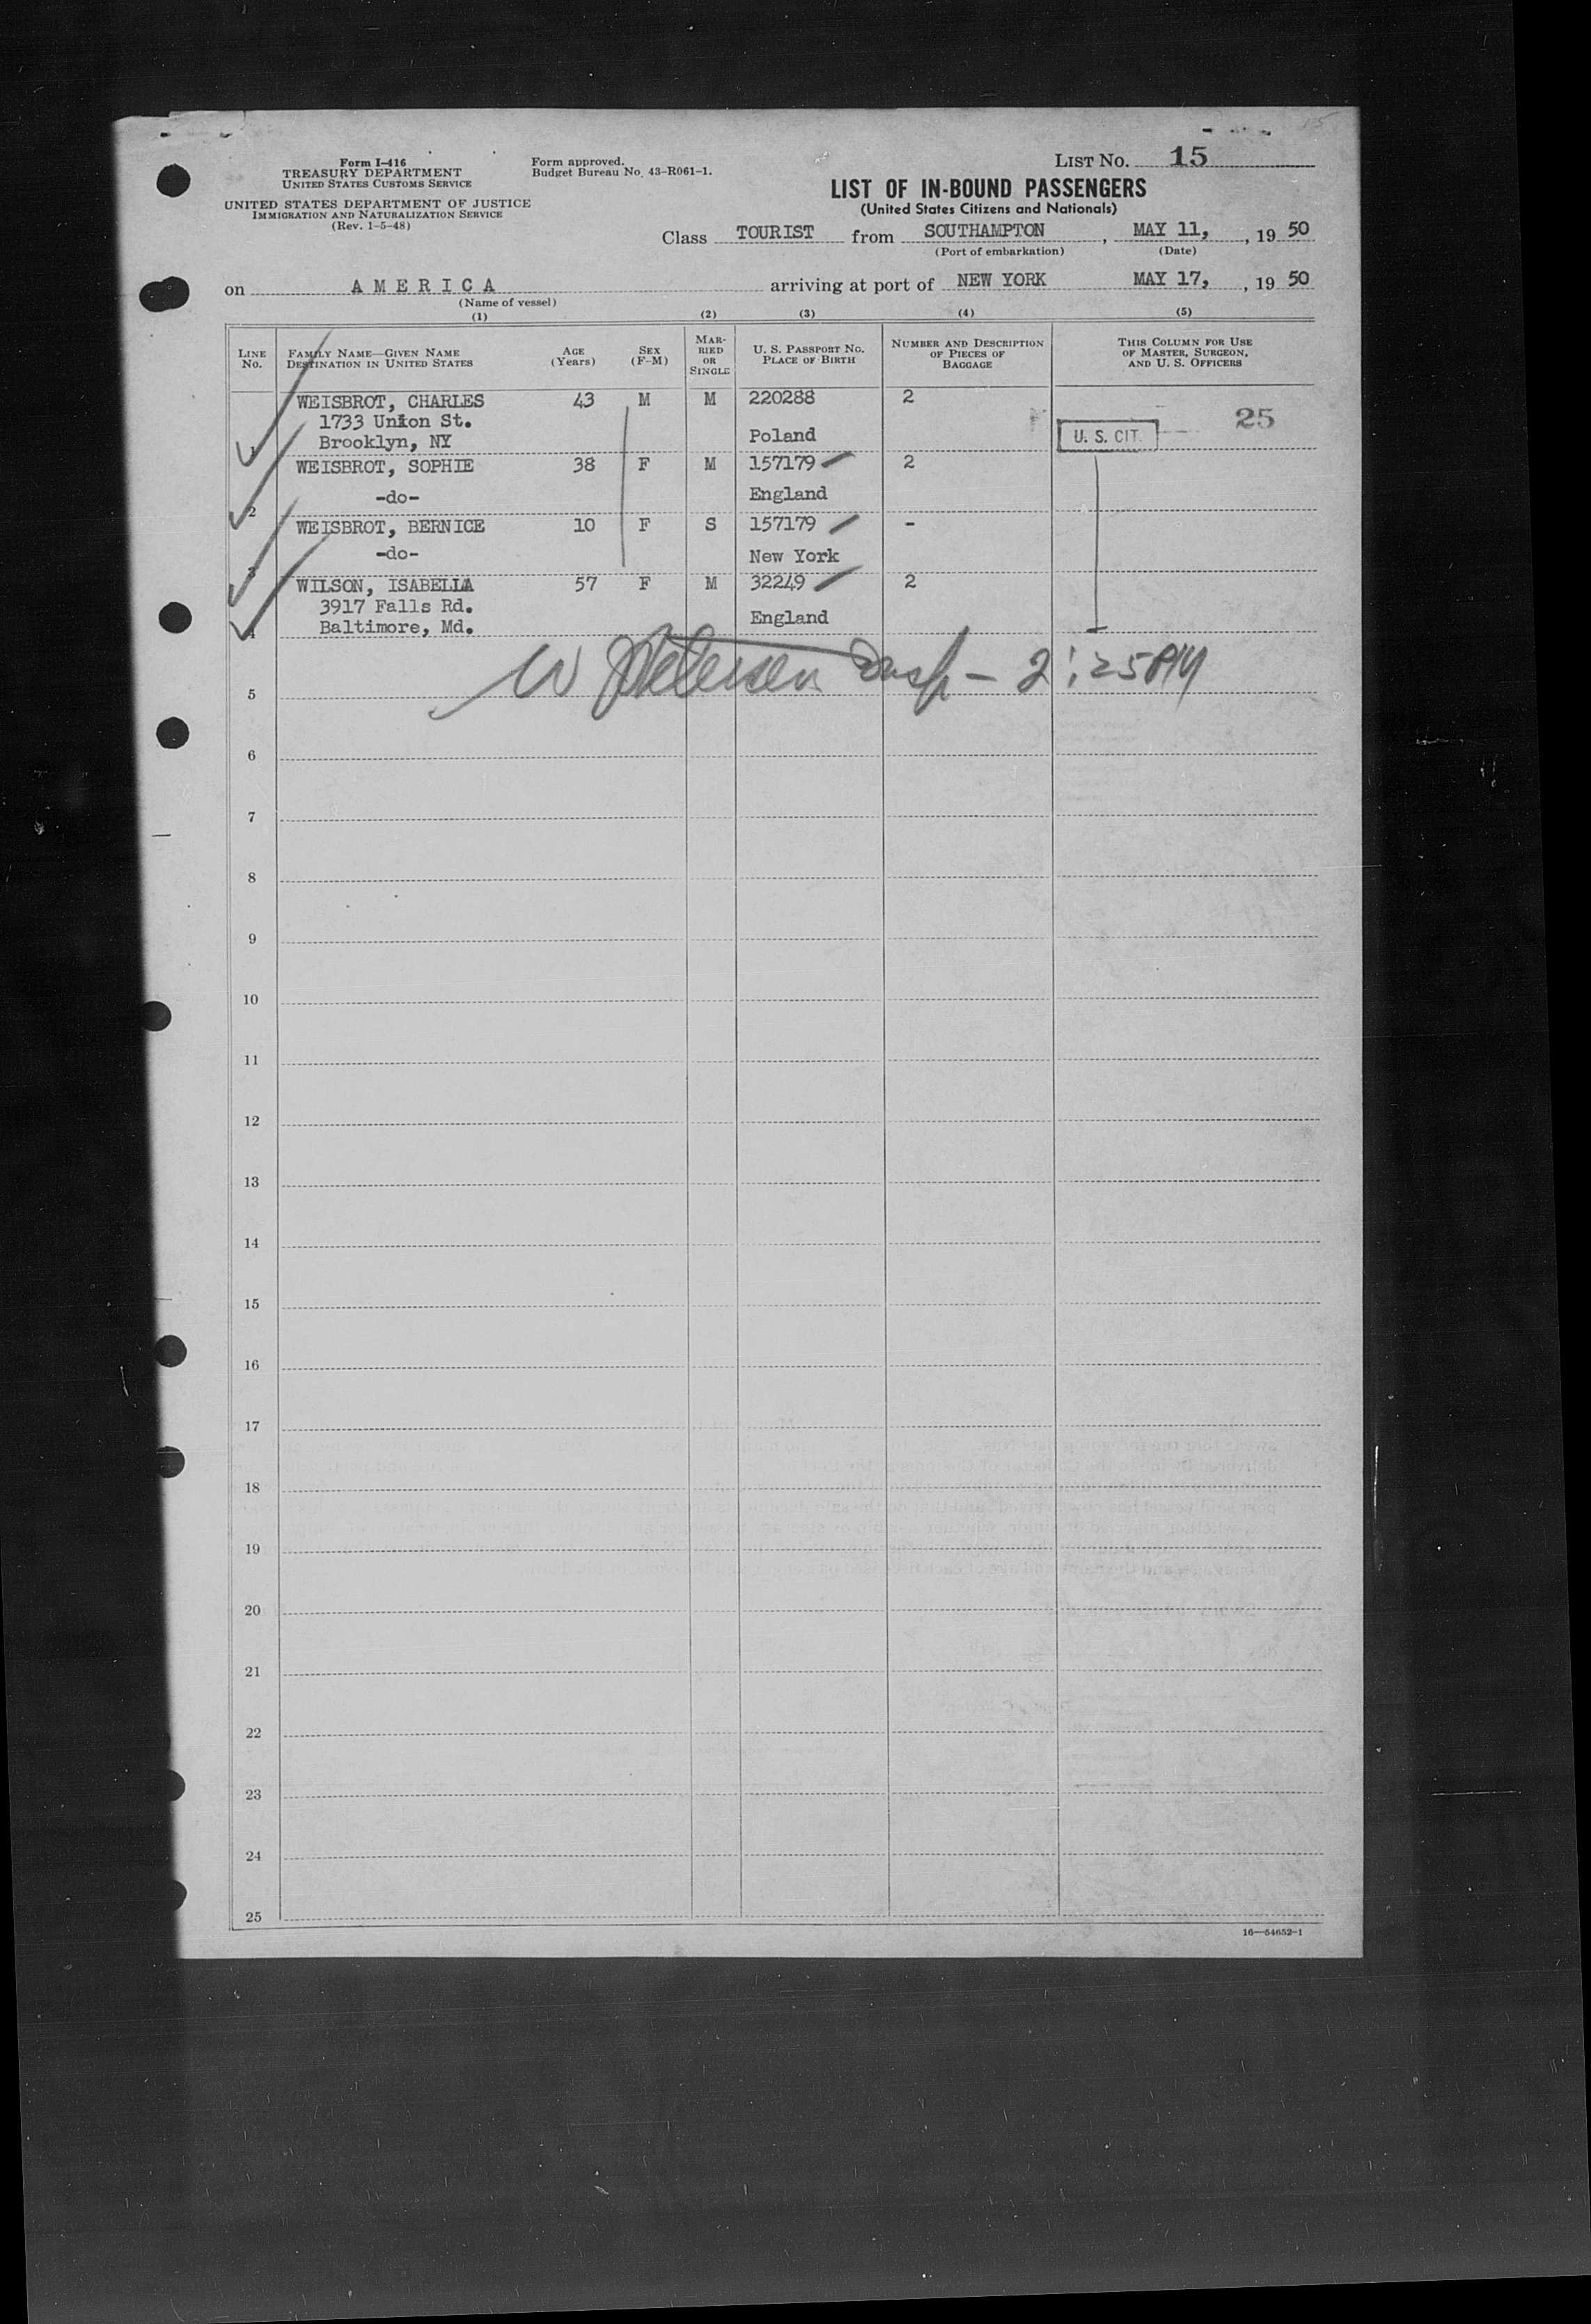 15
Form I-416
TREASURY DEPARTMENT
UNITED STATES CUSTOMS SERVICE
UNITED STATES DEPARTMENT OF JUSTICE
IMMIGRATION AND NATURALIZATION SERVICE
(Rev. 1-5-48)
Form approved.
Budget Bureau No. 43-R061-1.
LIST NO. 15
LIST OF IN-BOUND PASSENGERS
(United States Citizens and Nationals)
Class TOURIST from SOUTHAMPTON, MAY 11, , 19 50
(Port of embarkation) (Date)
on AMERICA arriving at port of NEW YORK MAY 17, , 19 50
(Name of vessel)
(1) (2) (3) (4) (5)
LINE NO. FAMILY NAME—GIVEN NAME DESTINATION IN UNITED STATES AGE (Years) SEX (F-M) MARRIED OR SINGLE U. S. PASSPORT NO. PLACE OF BIRTH NUMBER AND DESCRIPTION OF PIECES OF BAGGAGE THIS COLUMN FOR USE OF MASTER, SURGEON, AND U. S. OFFICERS
WEISBROT, CHARLES 43 M M 220288 2
1733 Union St. 25
1 Brooklyn, NY Poland U. S. CIT.
WEISBROT, SOPHIE 38 F M 157179 2
2 -do- England
WEISBROT, BERNICE 10 F S 157179 -
3 -do- New York
WILSON, ISABELLA 57 F M 32249 2
3917 Falls Rd.
4 Baltimore, Md. England
W Petersen Insp - 2:25 PM
5
6
7
8
9
10
11
12
13
14
15
16
17
18
19
20
21
22
23
24
25
16—54652-1